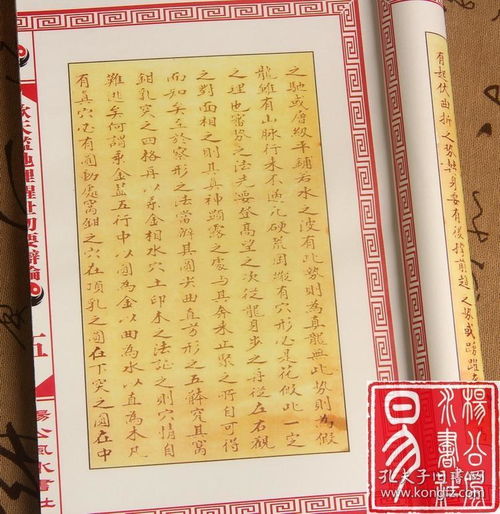 有起伏曲折之势與身要有後撐前趋之势或踴躍
之馳或層級平鋪若水之波有此势則為真龍無此势則為假
龍雖有山脉行来不過凡硬荒岡縱有穴形必是花假此一定
之理也審势之法先要登高望之次從龍身步之再從左右觀
之對面相之則其真神顯露之處與其奔来正聚之所自可得
而知矣至於察形之法當辨其圓尖曲直方形之五體究其窩
鉗乳突之四格再以乘金相水穴土印木之法証之則穴情自
難逃矣何謂乘金蓋五行中以圓為金以曲為水以直為木凡
有真穴必有圓動處窩鉗之穴在頂乳之圓在下突之圓在中
欽天監地理醒世切要辯論
楊公風水書社
楊公風
水書社
易
孔夫子旧书网
www.kongfz.com